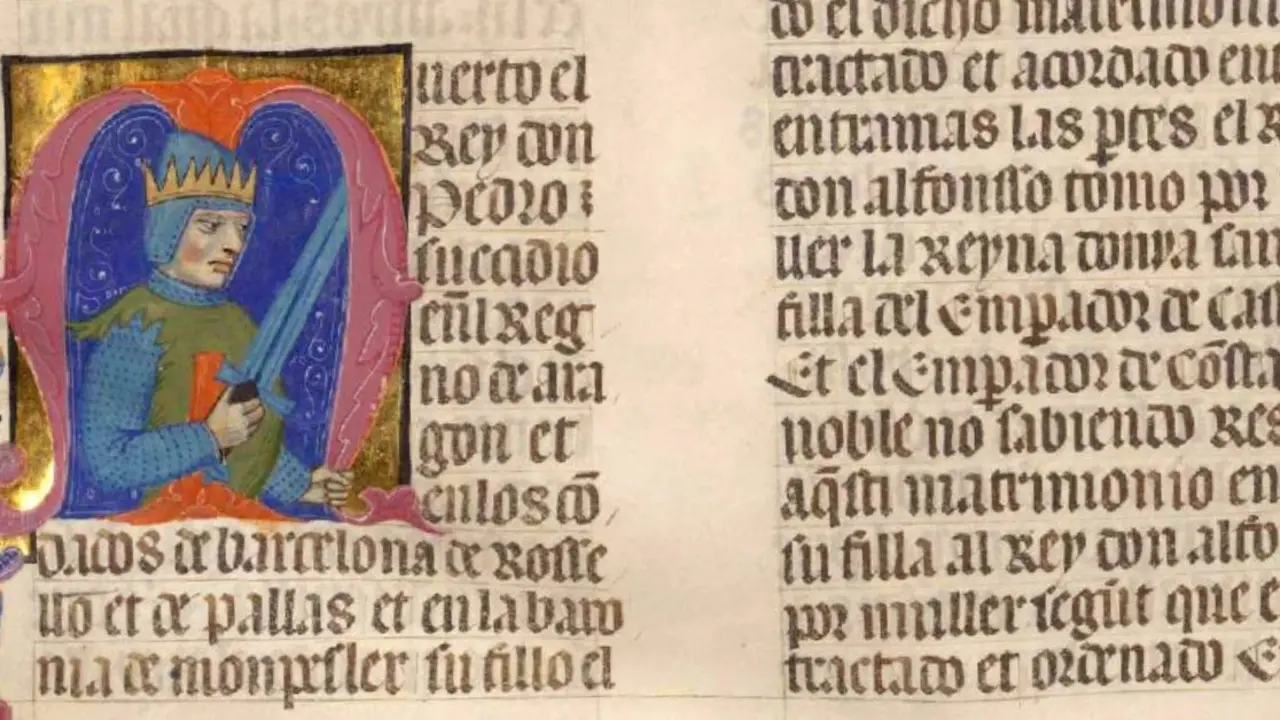 Muerto el
Rey don
Pedro :
succidio
en̄l Reg
no de ara
gon et
en los cō
dados de barcelona de Rosse
llō et de pallas et en la baro
nia de monpesler su fillo el
do el dicho matrimoni
tractado et acordado en
entramas las ptes el R
don alfonsso tomo por
uer la Reyna donya san
filla del Emperador de Cas
Et el Emperador de Cōsta
noble no sabiendo res
aq̄sti matrimonio en
su filla al Rey don alfo
por muller segūt que e
tractado et ordenado E